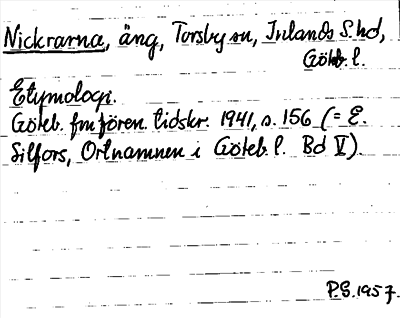 Nickrarna, äng, Torsby sn, Inlands S. hd,
Göteb. l.
Etymologi.
Göteb. fmfören. tidskr. 1941, s. 156 (= E.
Silfors, Ortnamnen i Göteb. l. Bd V).
P.S. 1957.